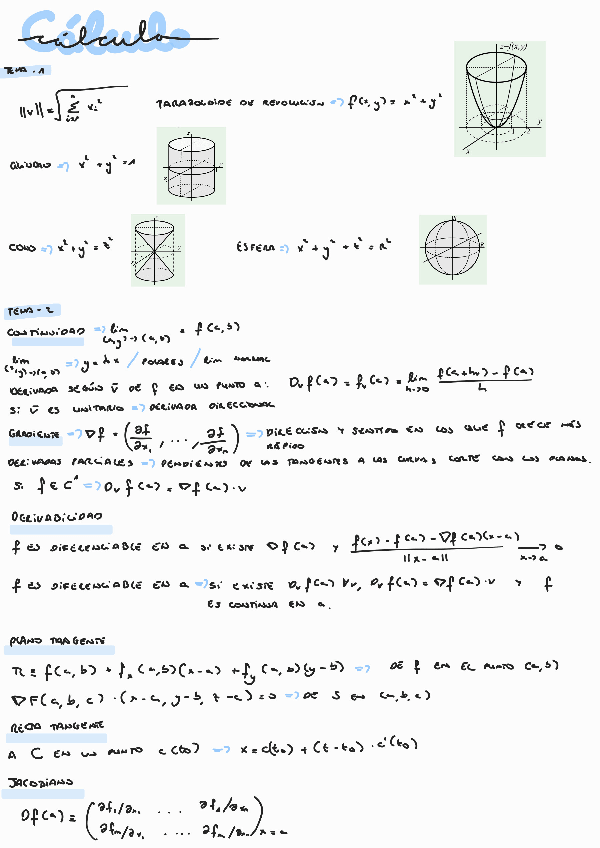 Cálculo
cálculo
TEMA - 1
z=f(x,y)
||v|| = √ Σ i=1 n xᵢ²
PARABOLOIDE DE REVOLUCIÓN => f(x,y) = x² + y²
CILINDRO => x² + y² = 1
CONO => x² + y² = z²
ESFERA => x² + y² + z² = R²
TEMA - 2
CONTINUIDAD => lim (x,y)→(a,b) = f(a,b)
lim (x,y)→(a,b) => y = λx / POLARES / lim NORMAL
DERIVADA SEGÚN v̄ DE f EN UN PUNTO a: Dᵥf(a) = fᵥ(a) = lim h→0 f(a+hv) - f(a) / h
SI v̄ ES UNITARIO => DERIVADA DIRECCIONAL
GRADIENTE => ∇f = (∂f/∂x₁, ..., ∂f/∂xₙ) => DIRECCIÓN Y SENTIDO EN LOS QUE f CRECE MÁS
RÁPIDO
DERIVADAS PARCIALES => PENDIENTES DE LAS TANGENTES A LAS CURVAS CORTE CON LOS PLANOS.
SI f ∈ C¹ => Dᵥf(a) = ∇f(a)·v
DERIVABILIDAD
f ES DIFERENCIABLE EN a SI EXISTE ∇f(a) Y f(x) - f(a) - ∇f(a)(x-a) / ||x-a|| → x→a 0
f ES DIFERENCIABLE EN a => SI EXISTE Dᵥf(a) ∀v, Dᵥf(a) = ∇f(a)·v Y f
ES CONTINUA EN a.
PLANO TANGENTE
π ≡ f(a,b) + fₓ(a,b)(x-a) + f_y(a,b)(y-b) => DE f EN EL PUNTO (a,b)
∇F(a,b,c)·(x-a, y-b, z-c) = 0 => DE S EN (a,b,c)
RECTA TANGENTE
A C EN UN PUNTO c(t₀) => x = c(t₀) + (t-t₀)·c'(t₀)
JACOBIANO
Df(a) = (∂f₁/∂x₁ ... ∂f₁/∂xₙ
∂fₘ/∂x₁ .... ∂fₘ/∂xₙ) x=a